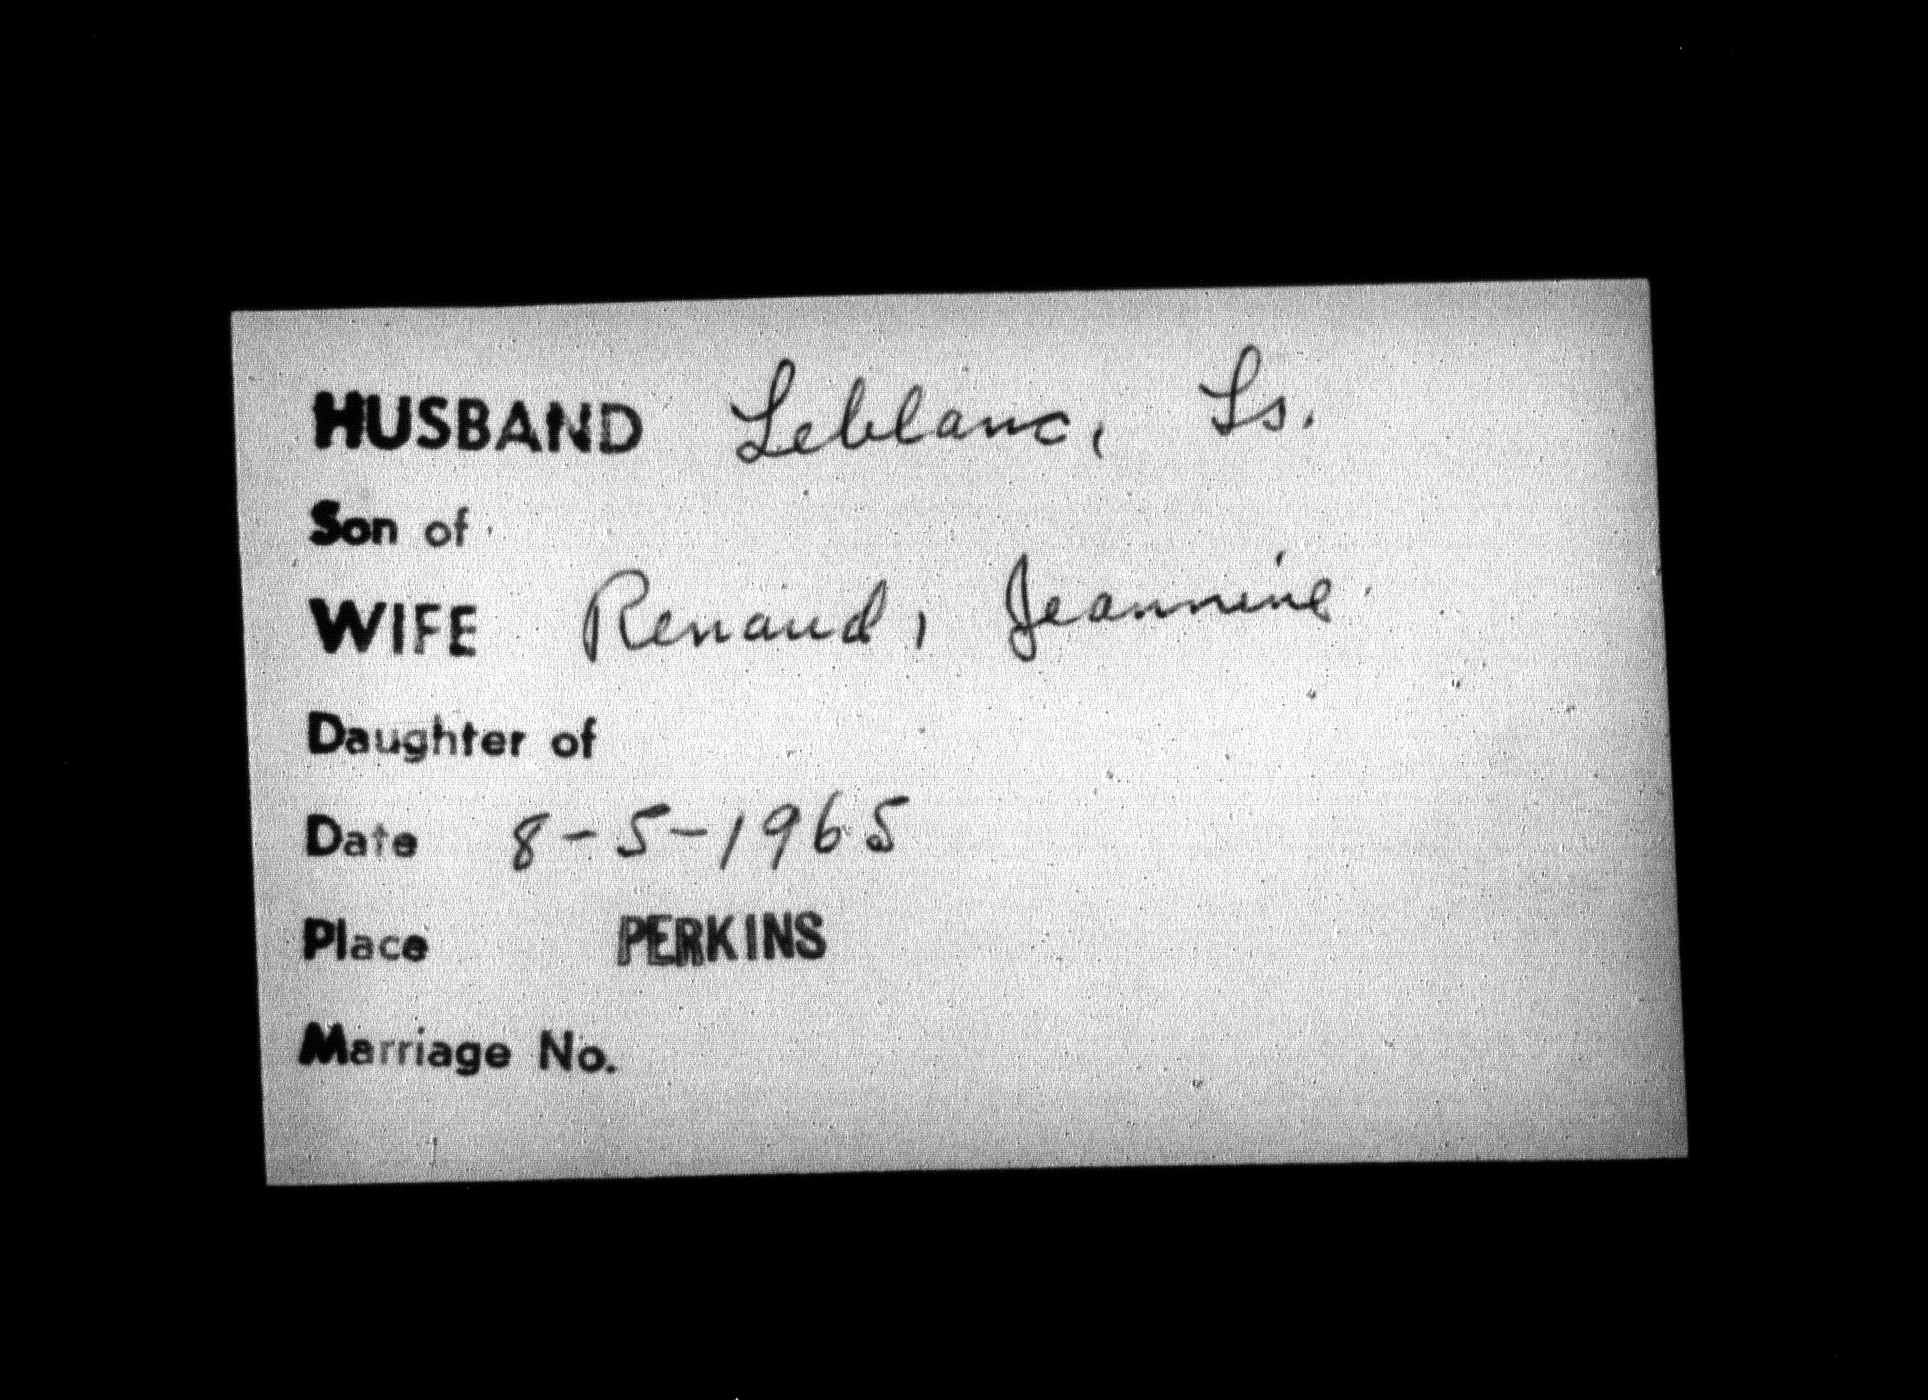 HUSBAND Leblanc, Ls.
Son of
WIFE Renaud, Jeannine
Daughter of
Date 8-5-1965
Place PERKINS
Marriage No.